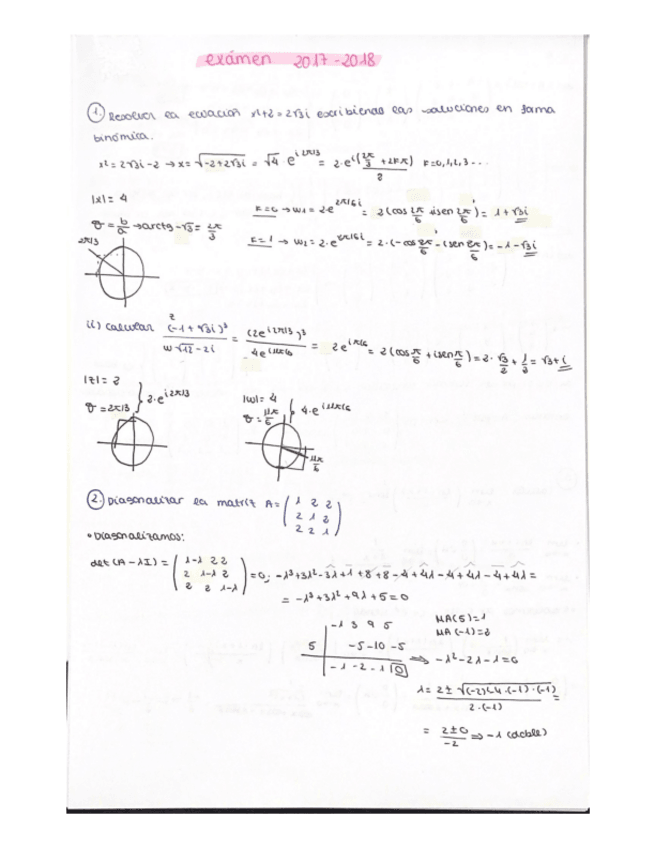 exámen 2017-2018
1. Resolver la ecuación x²+2=2√3i escribiendo las soluciones en forma
binómica.
x²=2√3i-2 → x=√-2+2√3i = √4·e^i2π/3 = 2·e^i(2π/3+2kπ)/2 k=0,1,2,3...
|x|=4
θ=b/a→arctg-√3=2π/3
2π/3
k=0 → w₁=2·e^2π/6i = 2(cos2π/6 isen2π/6)=1+√3i
k=1 → w₂=2·e^8π/6i = 2·(-cos8π/6-isen8π/6)=-1-√3i
ii) calcular z(-1+√3i)³/w√12-2i = (2e^i2π/3)³/4e^i11π/6 = 2e^iπ/6 = 2(cosπ/6+isenπ/6)=2·√3/2+1/2=√3+i
|z|=2
θ=2π/3
2·e^i2π/3
|w|=4
θ=11π/6
4·e^i11π/6
11π/6
2. Diagonalizar la matriz A=(1 2 2
2 1 2
2 2 1)
• Diagonalizamos:
det(A-λI)=(1-λ 2 2
2 1-λ 2
2 2 1-λ)=0; -λ³+3λ²-3λ+1+8+8-4+4λ-4+4λ-4+4λ=
=-λ³+3λ²+9λ+5=0
-1 3 9 5
5 -5 -10 -5
-1 -2 -1 0 ⇒ -λ²-2λ-1=0
MA(5)=1
MA(-1)=2
λ=2±√(-2)(-4·(-1)·(-1)/2·(-1)=
=2±0/-2 ⇒ -1 (doble)